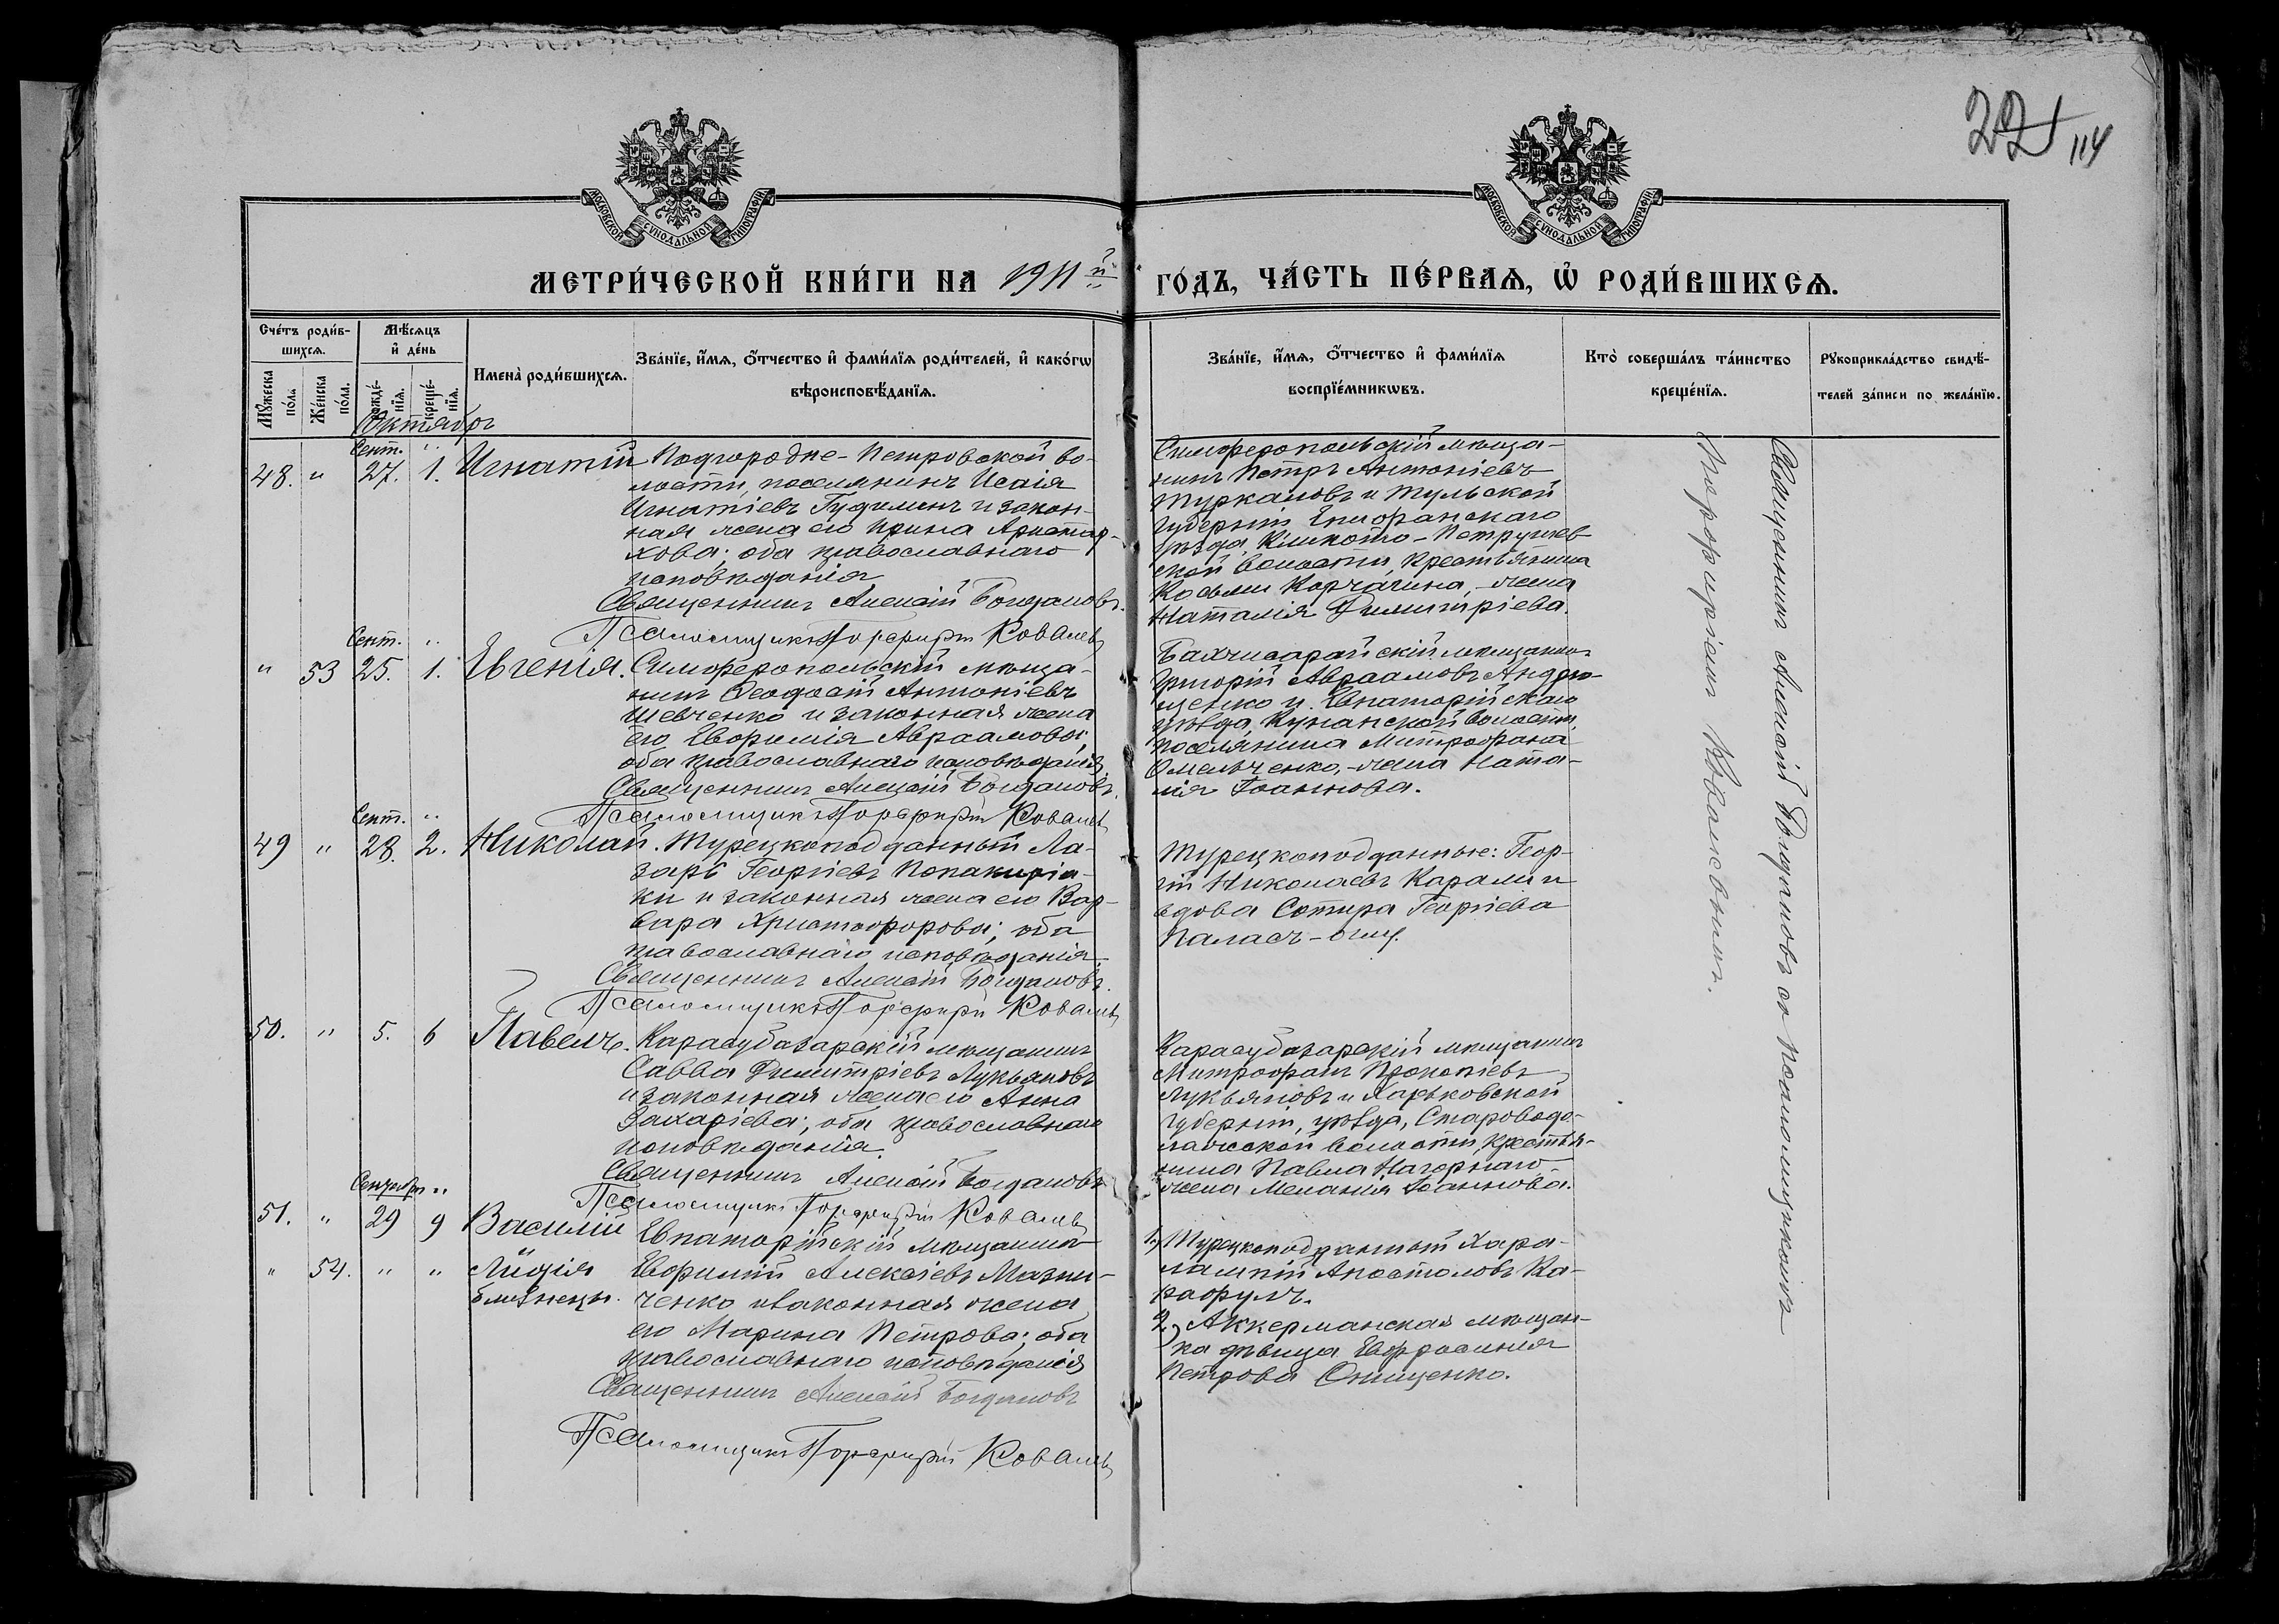 22 114
МОСКОВСКОЙ СѴНОДАЛЬНОЙ ТИПОГРАФІИ
МОСКОВСКОЙ СѴНОДАЛЬНОЙ ТИПОГРАФІИ
МЕТРИ́ЧЕСКОЙ КНИ́ГИ НА 1911й
ГО́ДЪ, ЧА́СТЬ ПЕ́РВАѦ, Ѡ҆ РОДИ́ВШИХСѦ.
Сче́тъ роди́в-
шихсѧ.
Мꙋ́жеска по́ла.
Же́нска по́ла.
Мѣ́сѧцъ
и҆ де́нь
рожде́-
нїѧ.
креще́-
нїѧ.
Имена̀ роди́вшихсѧ.
Зва́нїе, и҆́мѧ, ѻ҆́тчество и҆ фами́лїѧ роди́телей, и҆ како́гѡ
вѣроисповѣ́данїѧ.
Зва́нїе, и҆́мѧ, ѻ҆́тчество и҆ фами́лїѧ
воспрїе́мникѡвъ.
Кто̀ соверша́лъ та́инство
креще́нїѧ.
Рꙋкоприкла́дство свидѣ́-
телей за́писи по жела́нїю.
Октябрь
Сент. "
48. " 27. 1. Игнатій
Подгородне-Петровской во-
лости, поселянинъ Исаія
Игнатіевъ Гудименъ и закон-
ная жена его Ирина Аристар-
хова; оба православнаго
исповѣданія
Священникъ Алексій Богдановъ.
Псаломщикъ Порфирій Ковалевъ
Симферопольскій мѣща-
нинъ Петръ Антоніевъ
Туркановъ и Тульской
губерніи Епифанскаго
уѣзда, Петрушев-
ской волости, крестьянина
Косьмы Корчагина, - жена
Наталія Димитріева.
Сент. "
" 53 25. 1. Евгенія.
Симферопольскій мѣща-
нинъ Ѳеодосій Антоніевъ
Шевченко и законная жена
его Евфимія Авраамова;
оба православнаго исповѣданія
Священникъ Алексій Богдановъ.
Псаломщикъ Порфирій Ковалевъ
Бахчисарайскій мѣщанинъ
Григорій Авраамовъ Андрю-
щенко и Евпаторійскаго
уѣзда, Кунанской волости,
поселянина Митрофана
Омельченко, - жена Ната-
лія Іоаннова.
Сент. "
49 " 28. 2. Николай.
Турецкоподданный Ла-
зарь Георгіевъ Попакирія-
ки и законная жена его Вар-
вара Христофорова; оба
православнаго исповѣданія
Священникъ Алексій Богдановъ.
Псаломщикъ Порфирій Ковалевъ
Турецкоподданные: Геор-
гій Николаевъ Карали и
вдова Сотира Георгіева
Паласъ-оглу.
50. " 5. 6 Павелъ.
Карасубазарскій мѣщанинъ
Савва Димитріевъ Лукьяновъ
и законная жена его Анна
Захаріева; оба православнаго
исповѣданія.
Священникъ Алексій Богдановъ
Псаломщикъ Порфирій Ковалевъ
Карасубазарскій мѣщанинъ
Митрофанъ Прокопіевъ
Лукьяновъ и Харьковской
губерніи, уѣзда, Староводо-
лажской волости, крестья-
нина Павла Нагорнаго
жена Меланія Іоаннова.
Сентябрь "
51. " 29 9 Василій
" 54. " " Лидія
близнецы.
Евпаторійскій мѣщанинъ
Евфимій Алексіевъ Мазни-
ченко и законная жена
его Марина Петрова; оба
православнаго исповѣданія
Священникъ Алексій Богдановъ
Псаломщикъ Порфирій Ковалевъ
1.) Турецкоподданный Хара-
лампій Апостоловъ Ка-
рафулъ.
2.) Аккерманская мѣщан-
ка дѣвица Евфросинія
Петрова Онищенко.
Священникъ Алексій Богдановъ со псаломщикомъ
Порфиріемъ Ковалевымъ.